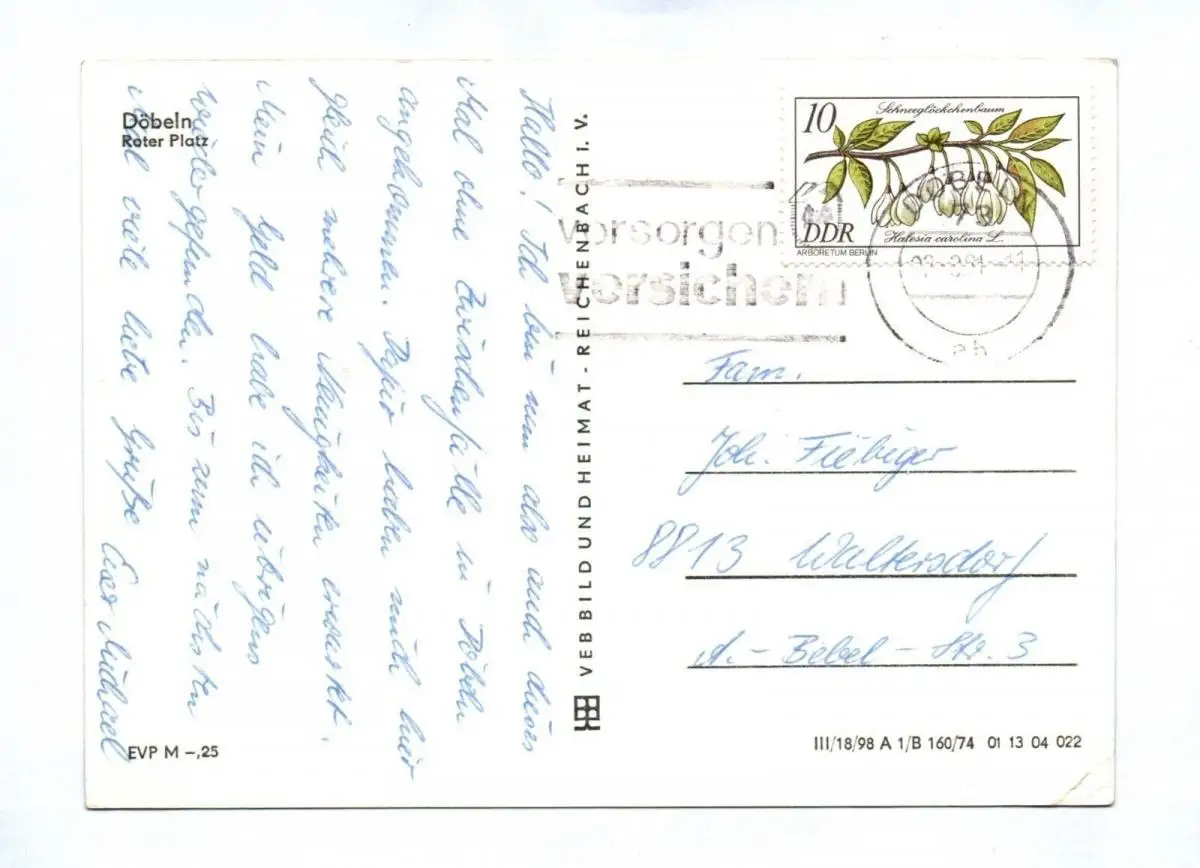 Döbeln
Roter Platz
Hallo! Ich bin nun also auch dieses
Mal ohne Zwischenfälle in Döbeln
angekommen. Dafür haben mich hier
gleich mehrere Neuigkeiten erwartet.
Mein Geld habe ich übrigens
wiedergefunden. Bis zum nächsten
Mal viele liebe Grüße Euer Michael
EVP M –,25
VEB BILD UND HEIMAT - REICHENBACH i. V.
10
Schneeglöckchenbaum
DDR
Halesia carolina L.
ARBORETUM BERLIN
vorsorgen
versichern
Fam.
Joh. Fiebiger
8813 Waltersdorf
A.-Bebel-Str. 3
III/18/98 A 1/B 160/74 01 13 04 022